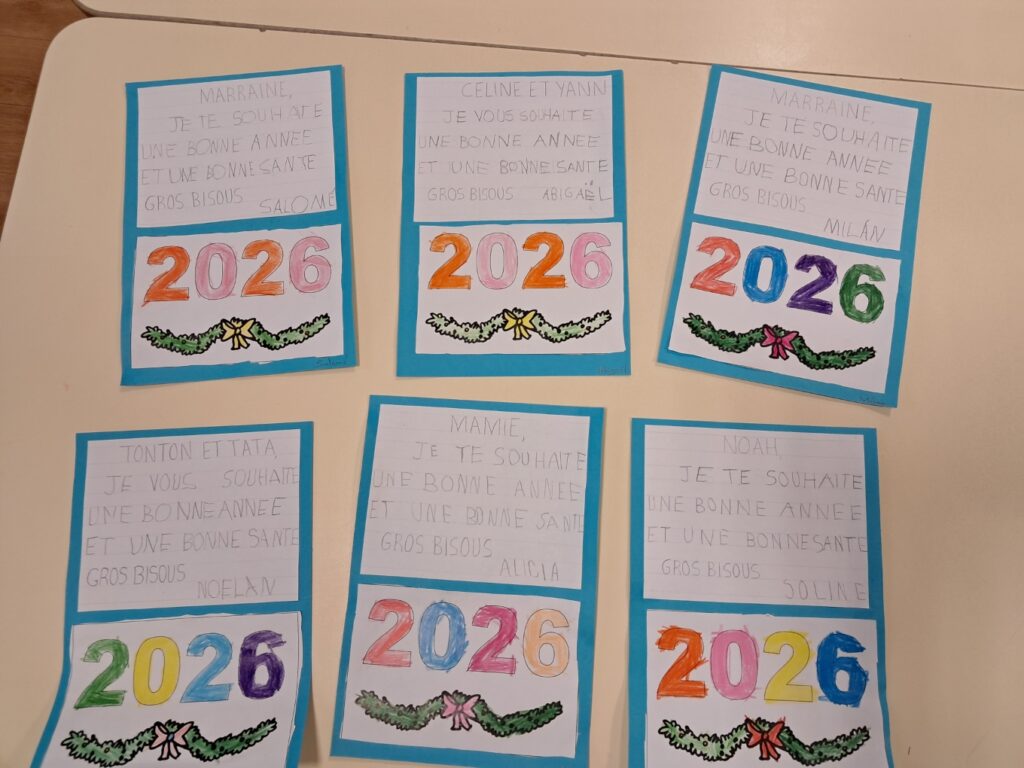 MARRAINE,
JE TE SOUHAITE
UNE BONNE ANNEE
ET UNE BONNE SANTE
GROS BISOUS
SALOMÉ
2026
CELINE ET YANN
JE VOUS SOUHAITE
UNE BONNE ANNEE
ET UNE BONNE SANTE
GROS BISOUS ABIGAËL
2026
MARRAINE,
JE TE SOUHAITE
UNE BONNE ANNEE
ET UNE BONNE SANTE
GROS BISOUS
MILÀN
2026
TONTON ET TATA,
JE VOUS SOUHAITE
UNE BONNE ANNEE
ET UNE BONNE SANTE
GROS BISOUS
NOELÀN
2026
MAMIE,
JE TE SOUHAITE
UNE BONNE ANNEE
ET UNE BONNE SANTE
GROS BISOUS
ALICIA
2026
NOAH,
JE TE SOUHAITE
UNE BONNE ANNEE
ET UNE BONNE SANTE
GROS BISOUS
SOLINE
2026